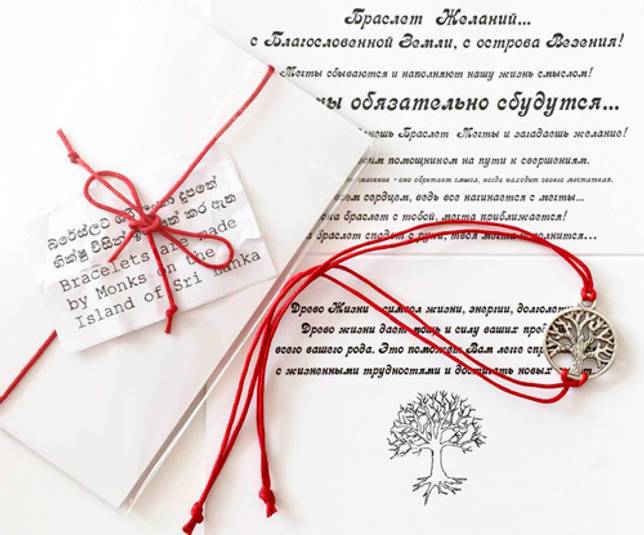 Браслет Желаний...
с Благословенной Земли, с острова Везения!
Мечты сбываются и наполняют нашу жизнь смыслом!
обязательно сбудутся...
Браслет Мечты и загадаешь желание!
помощником на пути к свершениям.
оно обретает смысл, когда находит своего мечтателя.
сердцем, ведь все начинается с мечты...
браслет с тобой, мечта приближается!
браслет спадет с руки, твоя мечта
Древо Жизни символ жизни, энергии,
Древо жизни дает и силу ваших
всего вашего рода. Это Вам легче
с жизненными трудностями и новых
විසින් කර ඇත
Bracelets are made
by Monks on the
Island of Sri Lanka